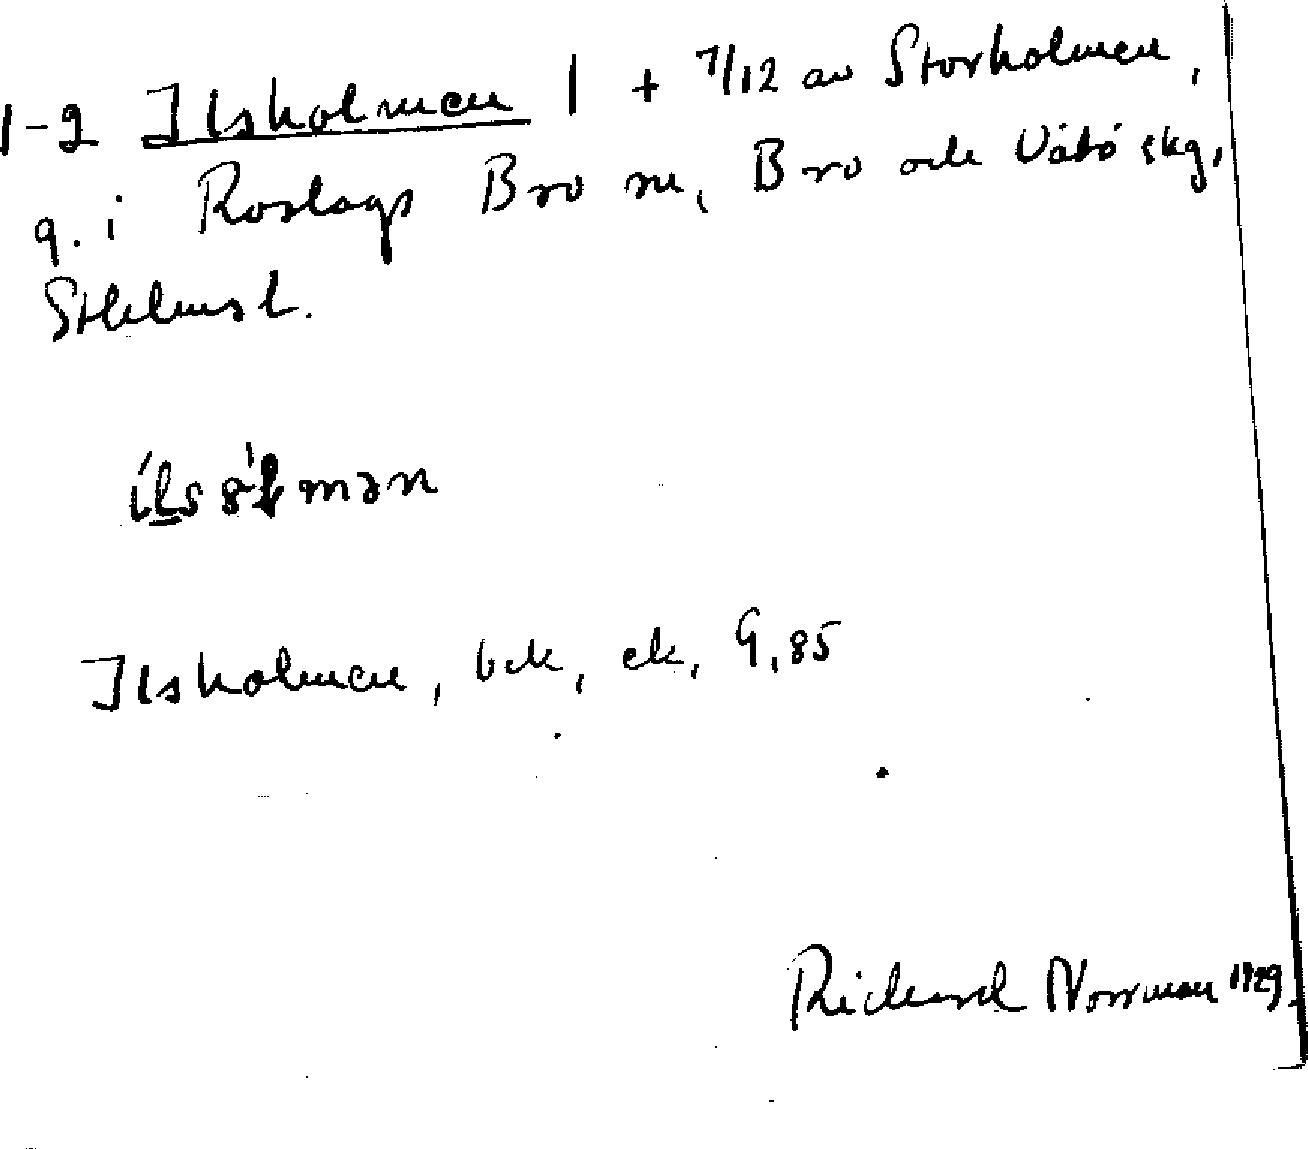 1-2 Ilsholmen 1 + 7/12 av Storholmen,
g. i Roslags Bro sn, Bro och Vätö skg,
Sthlms l.
Ilsholmen, bek, ek, G, 85
Richard Norrman 1929.